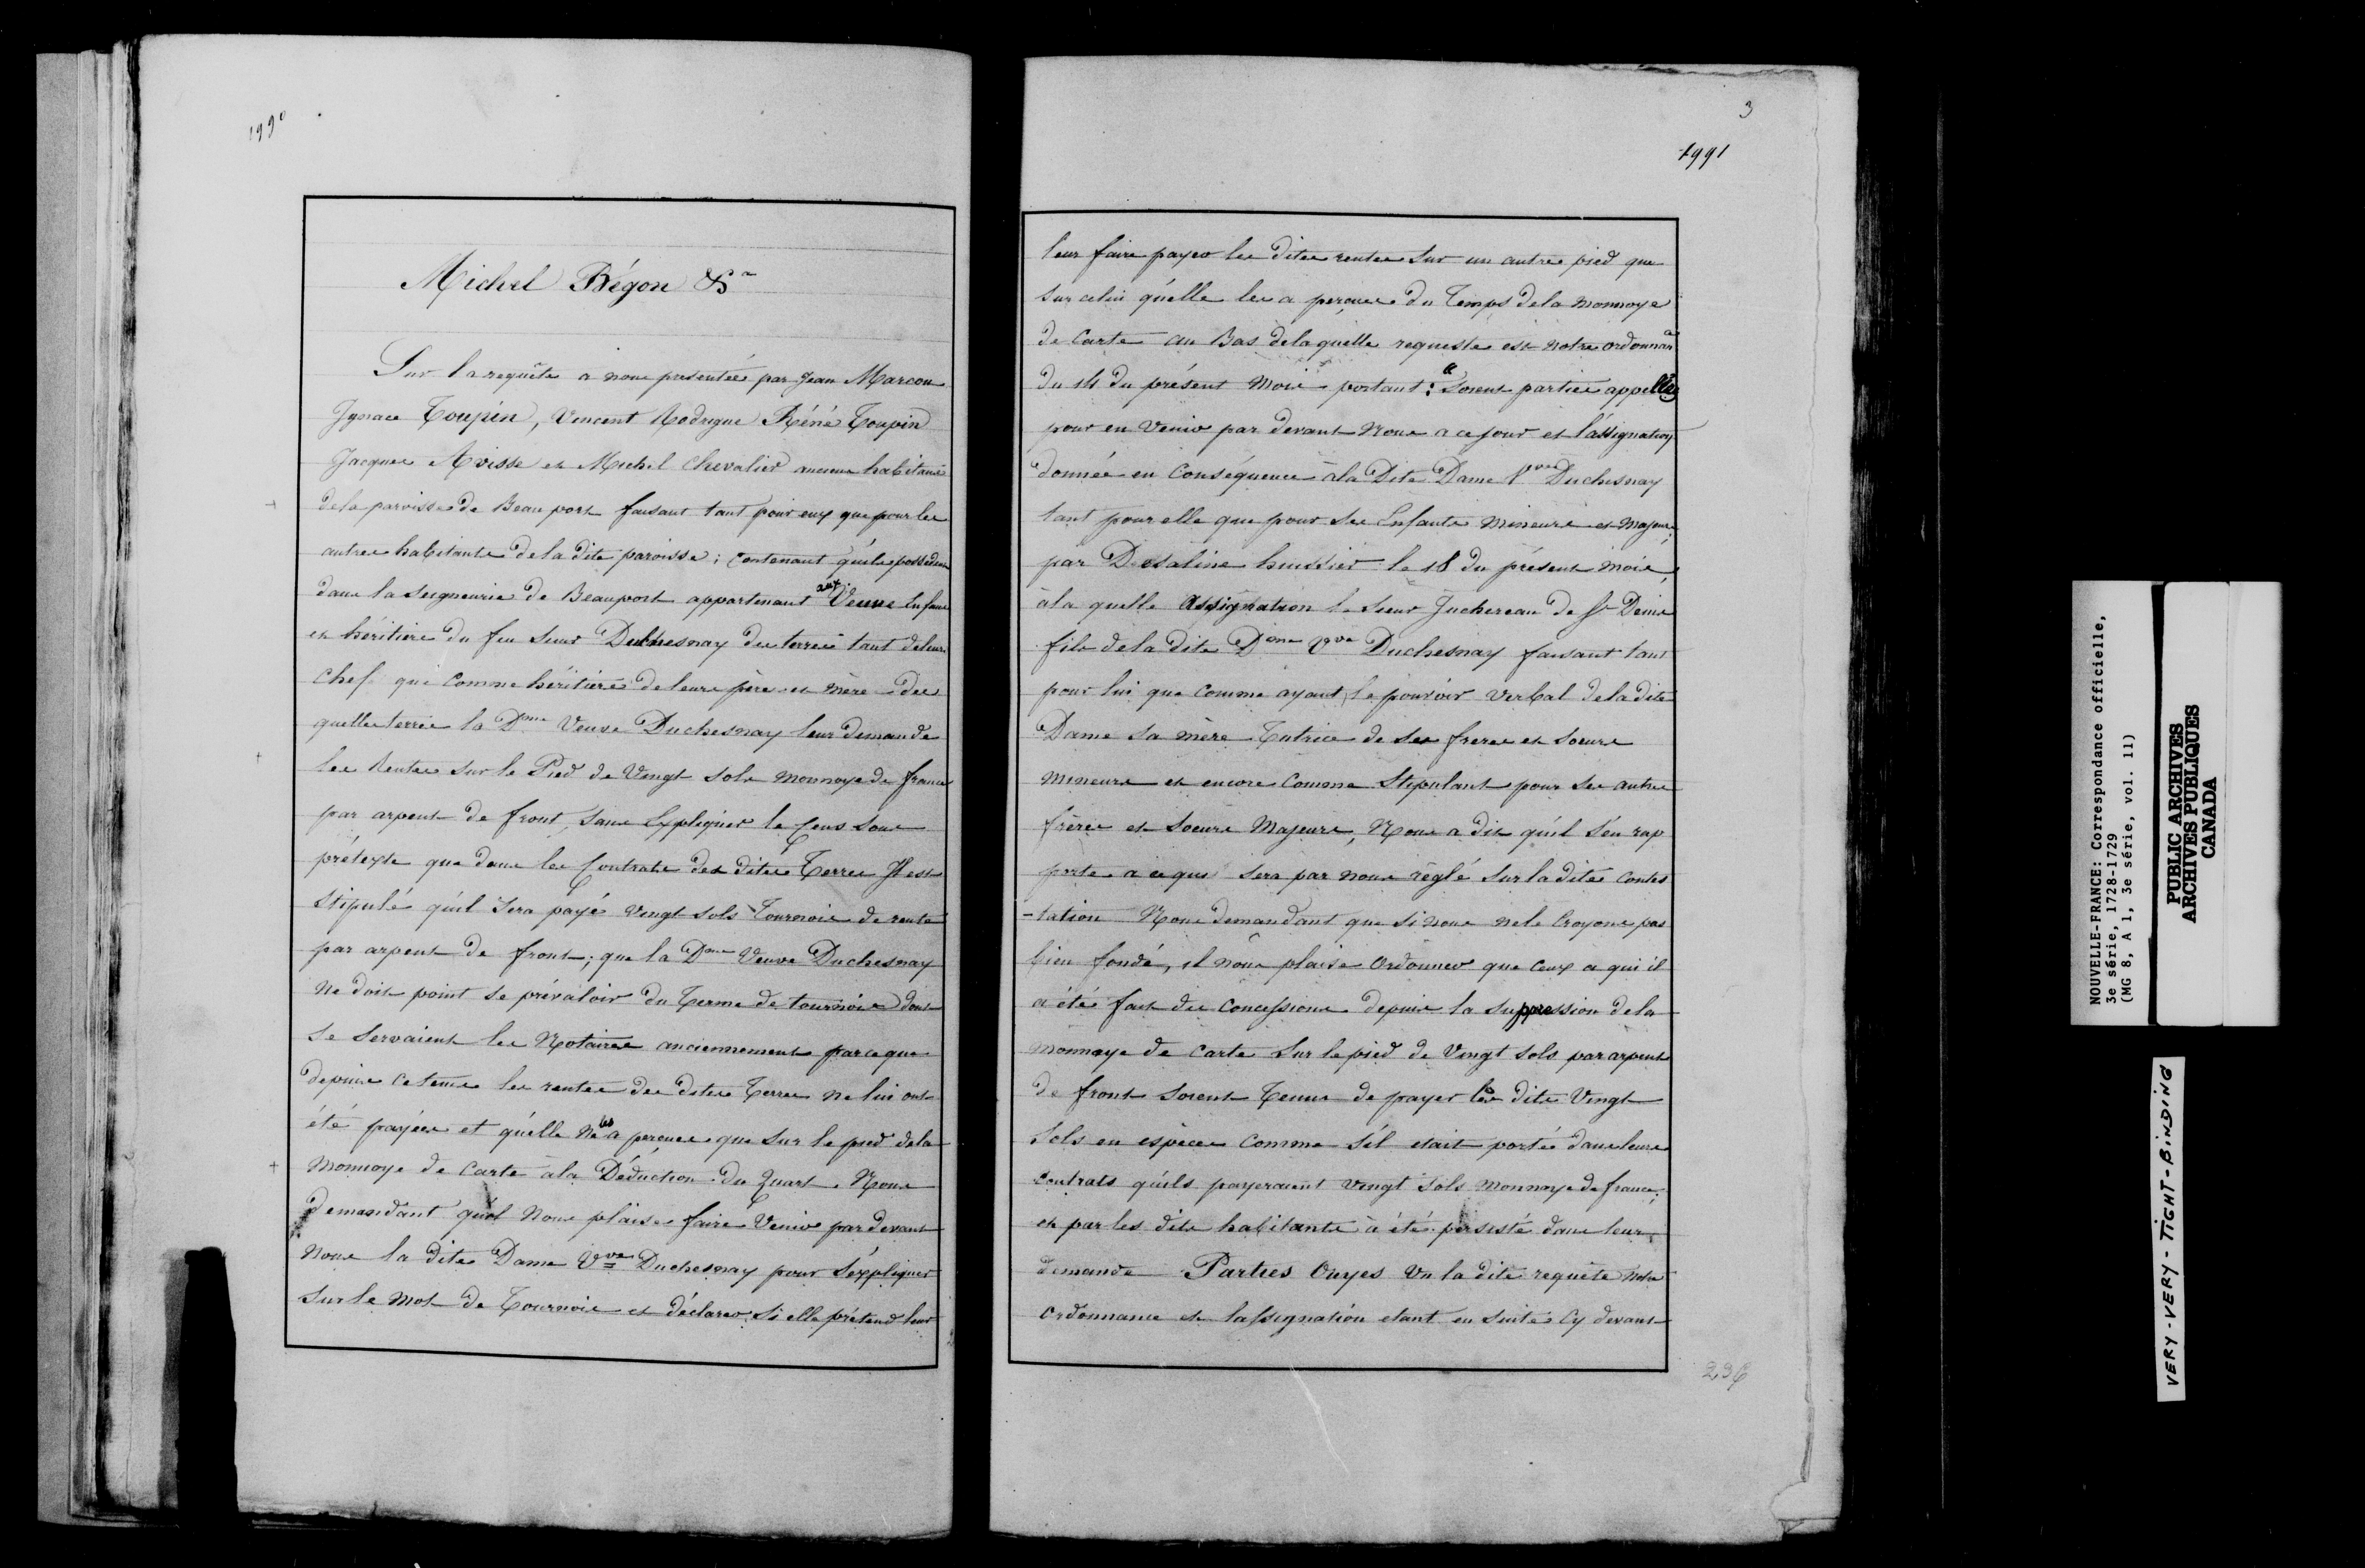 1990
Michel Bégon &a
Sur la requête à nous presentée par Jean Marcou
Ignace Toupin, Vincent Rodrigue Réné Toupin
Jacques Avisse et Michel Chevalier anciens habitans
de la paroisse de Beauport faisant tant pour eux que pour les
autres habitants de la dite paroisse ; contenant qu'ils possèdent
dans la seigneurie de Beauport appartenant aux Veuve Enfans
et héritiers du feu sieur Duchesnay des terres tant de leurs
chef que comme héritiers de leurs père et mère des
quelles terres la Dme Veuve Duchesnay leur demande
les Rentes sur le Pied de Vingt sols monnoye de france
par arpent de front, sans Expliquer le Cens sous
prétexte que dans les Contrats des dites Terres Il est
stipulé qu'il sera payé vingt sols Tournois de rente
par arpent de front ; que la Dme Veuve Duchesnay
ne doit point se prévaloir du terme de tournois dont
se servaient les Notaires anciennement parce que
depuis ce tems les rentes des dites Terres ne lui ont
été payées et qu'elle ne les a perçues que sur le pied de la
Monnoye de Carte à la Déduction du Quart. Nous
demandant qu'il nous plaise faire Venir par devant
nous la dite Dame Vve Duchesnay pour s'expliquer
sur le mot de Tournois et déclarer si elle prétend leur
3
1991
leur faire payer les dites rentes sur un autre pied que
sur celui qu'elle les a perçues du Temps de la monnoye
de Carte au Bas de laquelle requeste est notre ordonnance
du 14 du présent mois portant : " Soient parties appellées
pour en Venir par devant Nous a ce jour et l'assignation
donnée en Conséquence à la Dite Dame Vve Duchesnay
tant pour elle que pour ses Enfants mineurs et majeurs,
par Dessaline huissier le 18 du présent mois,
à la quelle Assignation le Sieur Juchereau de St Denis
fils de la dite Dme Vve Duchesnay faisant tant
pour lui que comme ayant le pouvoir verbal de la dite
Dame sa mère Tutrice de ses freres et soeurs
mineurs et encore comme Stipulant pour ses autres
frères et soeurs Majeurs, Nous a dit qu'il s'en rap
porte a ce qui sera par nous règlé sur la dite contes
-tation Nous demandant que si nous ne le Croyons pas
bien fondé, il nous plaise Ordonner que ceux a qui il
a été fait des concessions depuis la suppression de la
monnoye de carte sur le pied de Vingt sols par arpent
de front soient Tenus de payer les dits Vingt
sols en espèces comme s'il etait porté dans leurs
contrats qu'ils payeraient vingt sols monnoye de france;
et par les dits habitants à été persisté dans leur
demande Parties Ouyes Vu la dite requête Notre
Ordonnance et l'assignation etant en suite Cy devant
296
NOUVELLE-FRANCE: Correspondance officielle,
3e série, 1728-1729
(MG 8, A 1, 3e série, vol. 11)
PUBLIC ARCHIVES
ARCHIVES PUBLIQUES
CANADA
VERY-VERY-TIGHT-BINDING